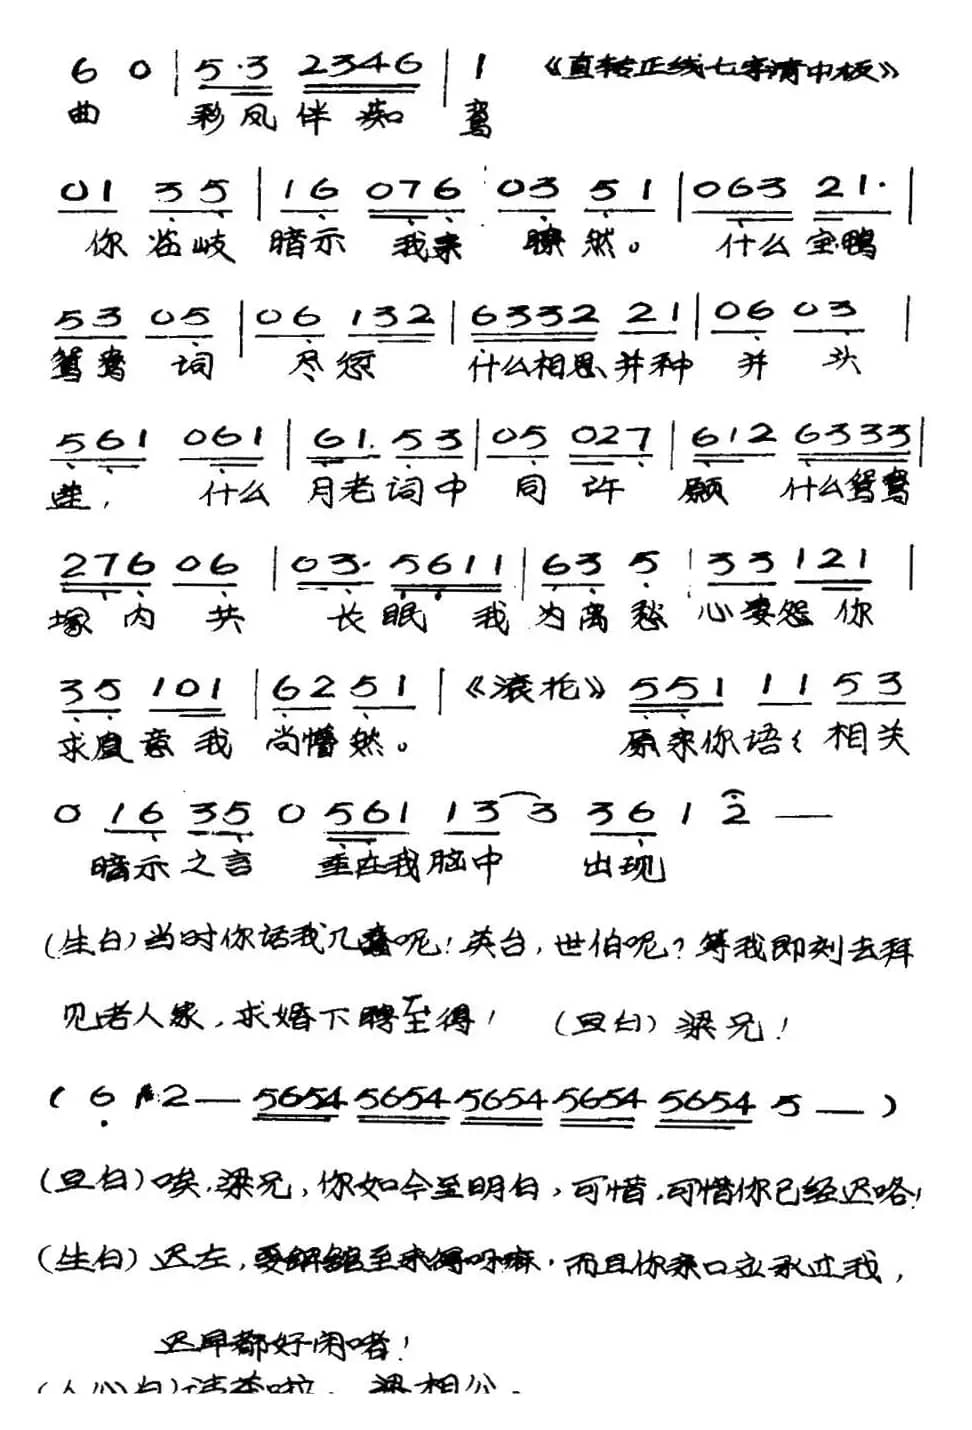 6 0 | 5·3 2346 | 1 《直转正线七字清中板》
曲 彩凤伴痴 鸳
01 35 | 16 076 03 51 | 063 21· |
你临岐 暗示 我来 然。 什么宝鸭
53 05 | 06 132 | 6332 21 | 06 03 |
鸳鸯 词 尽您 什么相思并种 并 头
561 061 | 61. 53 | 05 027 | 612 6333 |
莲, 什么 月老词中 同 许 愿 什么鸳鸯
276 06 | 03· 5611 | 63 5 33 121 |
塚内 共 长眠 我为离愁 心 怨你
35 101 | 62 51 | 《滚花》 551 11 53
求直意我 尚懵然。 原来你语〈 相关
0 16 35 0 561 13 3 36 1 2 —
暗示之言 在我脑中 出现
(生白)当时你话我几蠢呢!英台,世伯呢?等我即刻去拜
见老人家,求婚下聘至得! (旦白)梁兄!
( 6 2 — 5654 5654 5654 5654 5654 5 — )
(旦白)唉,梁兄,你如今至明白,可惜,可惜你已经迟咯!
(生白)迟左,至来得吖嘛,而且你亲口应承过我,
迟早都好闲啫!